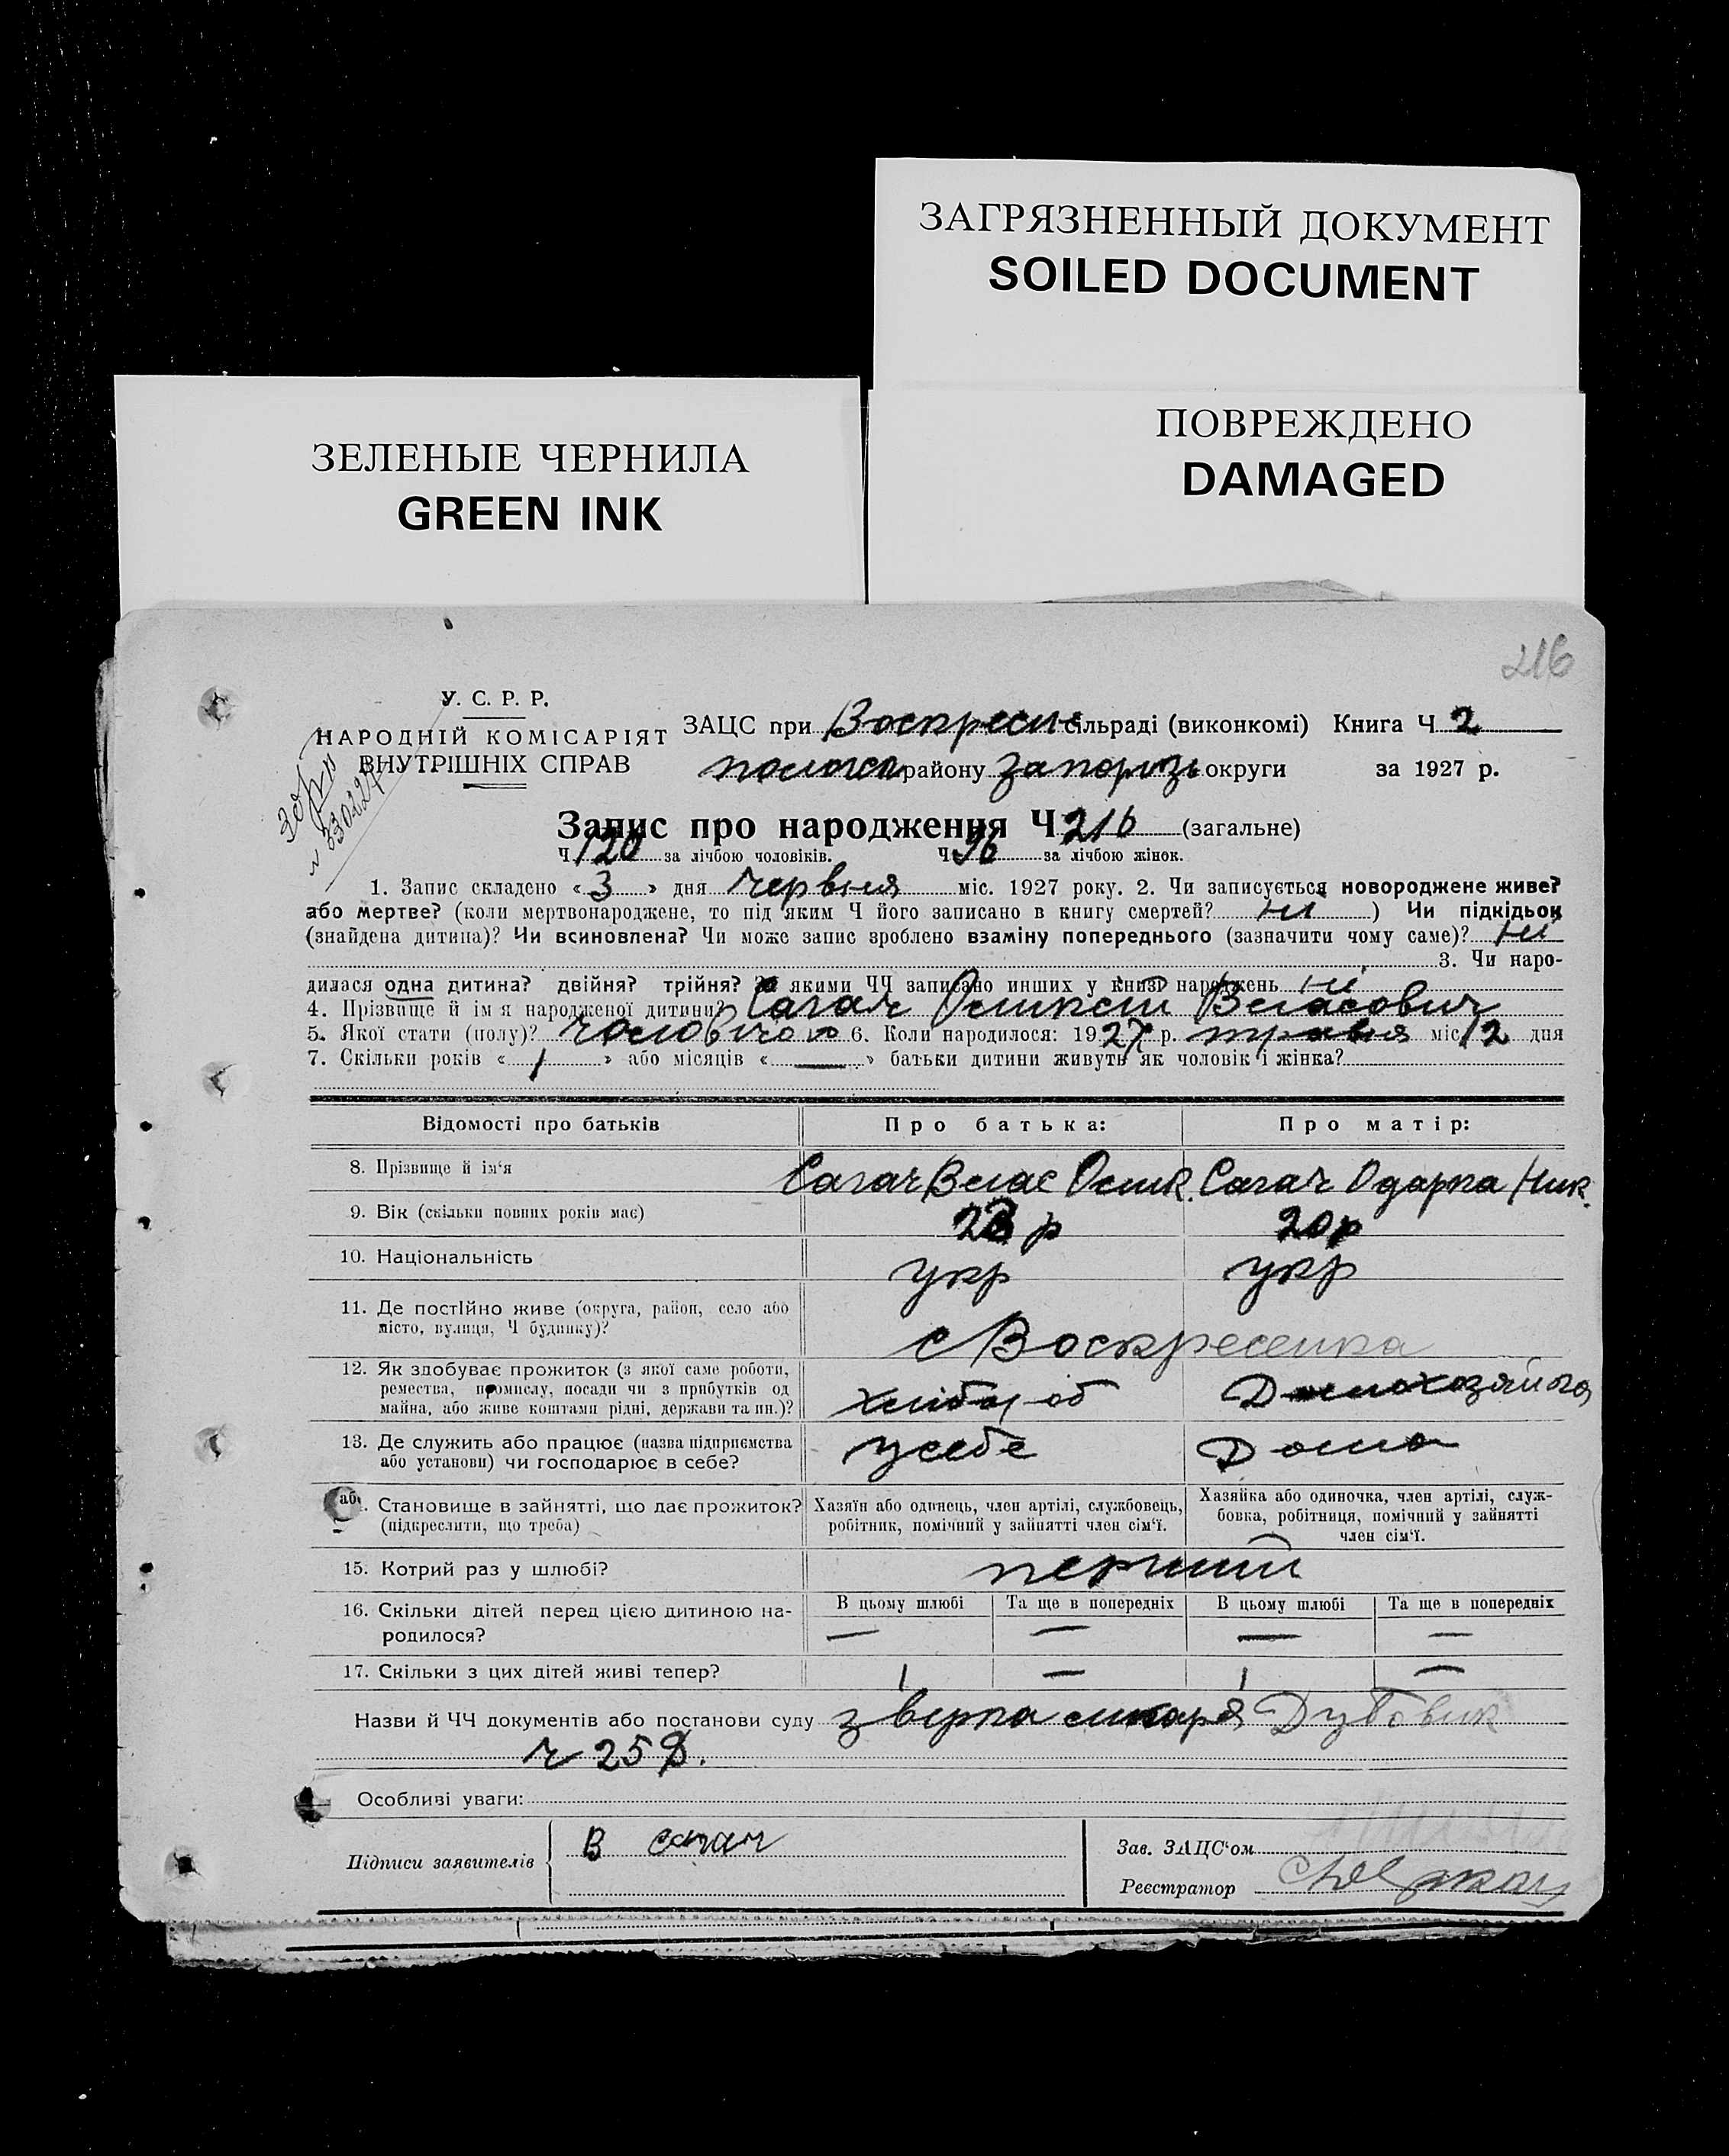 ЗАГРЯЗНЕННЫЙ ДОКУМЕНТ
SOILED DOCUMENT
ПОВРЕЖДЕНО
DAMAGED
ЗЕЛЕНЫЕ ЧЕРНИЛА
GREEN INK
216
У. С. Р. Р.
НАРОДНІЙ КОМІСАРІЯТ
ВНУТРІШНІХ СПРАВ
ЗАЦС при Воскресис сільраді (виконкомі) Книга Ч 2
району Запорізь округи за 1927 р.
Запис про народження Ч 216 (загальне)
Ч 120 за лічбою чоловіків. Ч 96 за лічбою жінок.
1. Запис складено « 3 » дня червня міс. 1927 року. 2. Чи записується новороджене живе?
або мертве? (коли мертвонароджене, то під яким Ч його записано в книгу смертей? ні ) Чи підкідьок
(знайдена дитина)? Чи всиновлена? Чи може запис зроблено взаміну попереднього (зазначити чому саме)? ні
3. Чи наро-
дилася одна дитина? двійня? трійня? За якими ЧЧ записано инших у книзі народжень ні
4. Прізвище й ім'я народженої дитини? Сагач Власович
5. Якої стати (полу)? чоловічого 6. Коли народилося: 1927 р. травня міс 12 дня
7. Скільки років « 1 » або місяців « — » батьки дитини живуть як чоловік і жінка?
Відомості про батьків Про батька: Про матір:
8. Прізвище й ім'я Сагач Влас Осик. Сагач Одарка Ник.
9. Вік (скільки повних років має) 23 р 20 р
10. Національність укр укр
11. Де постійно живе (округа, район, село або
місто, вулиця, Ч будинку)? с Воскресенка
12. Як здобуває прожиток (з якої саме роботи,
ремества, промислу, посади чи з прибутків од
майна, або живе коштами рідні, держави та ин.)? хлібороб Домохозяйка
13. Де служить або працює (назва підприємства
або установи) чи господарює в себе? у себе Дома
Становище в зайнятті, що дає прожиток?
(підкреслити, що треба)
Хазяїн або одинець, член артілі, службовець,
робітник, помічний у зайнятті член сім'ї.
Хазяйка або одиночка, член артілі, служ-
бовка, робітниця, помічний у зайнятті
член сім'ї.
15. Котрий раз у шлюбі? перший
16. Скільки дітей перед цією дитиною на-
родилося?
В цьому шлюбі Та ще в попередніх В цьому шлюбі Та ще в попередніх
— — — —
17. Скільки з цих дітей живі тепер? 1 — 1 —
Назви й ЧЧ документів або постанови суду лікаря Дубовик
ч 258.
Особливі уваги:
Підписи заявителів В Сагач
Зав. ЗАЦС'ом
Реєстратор